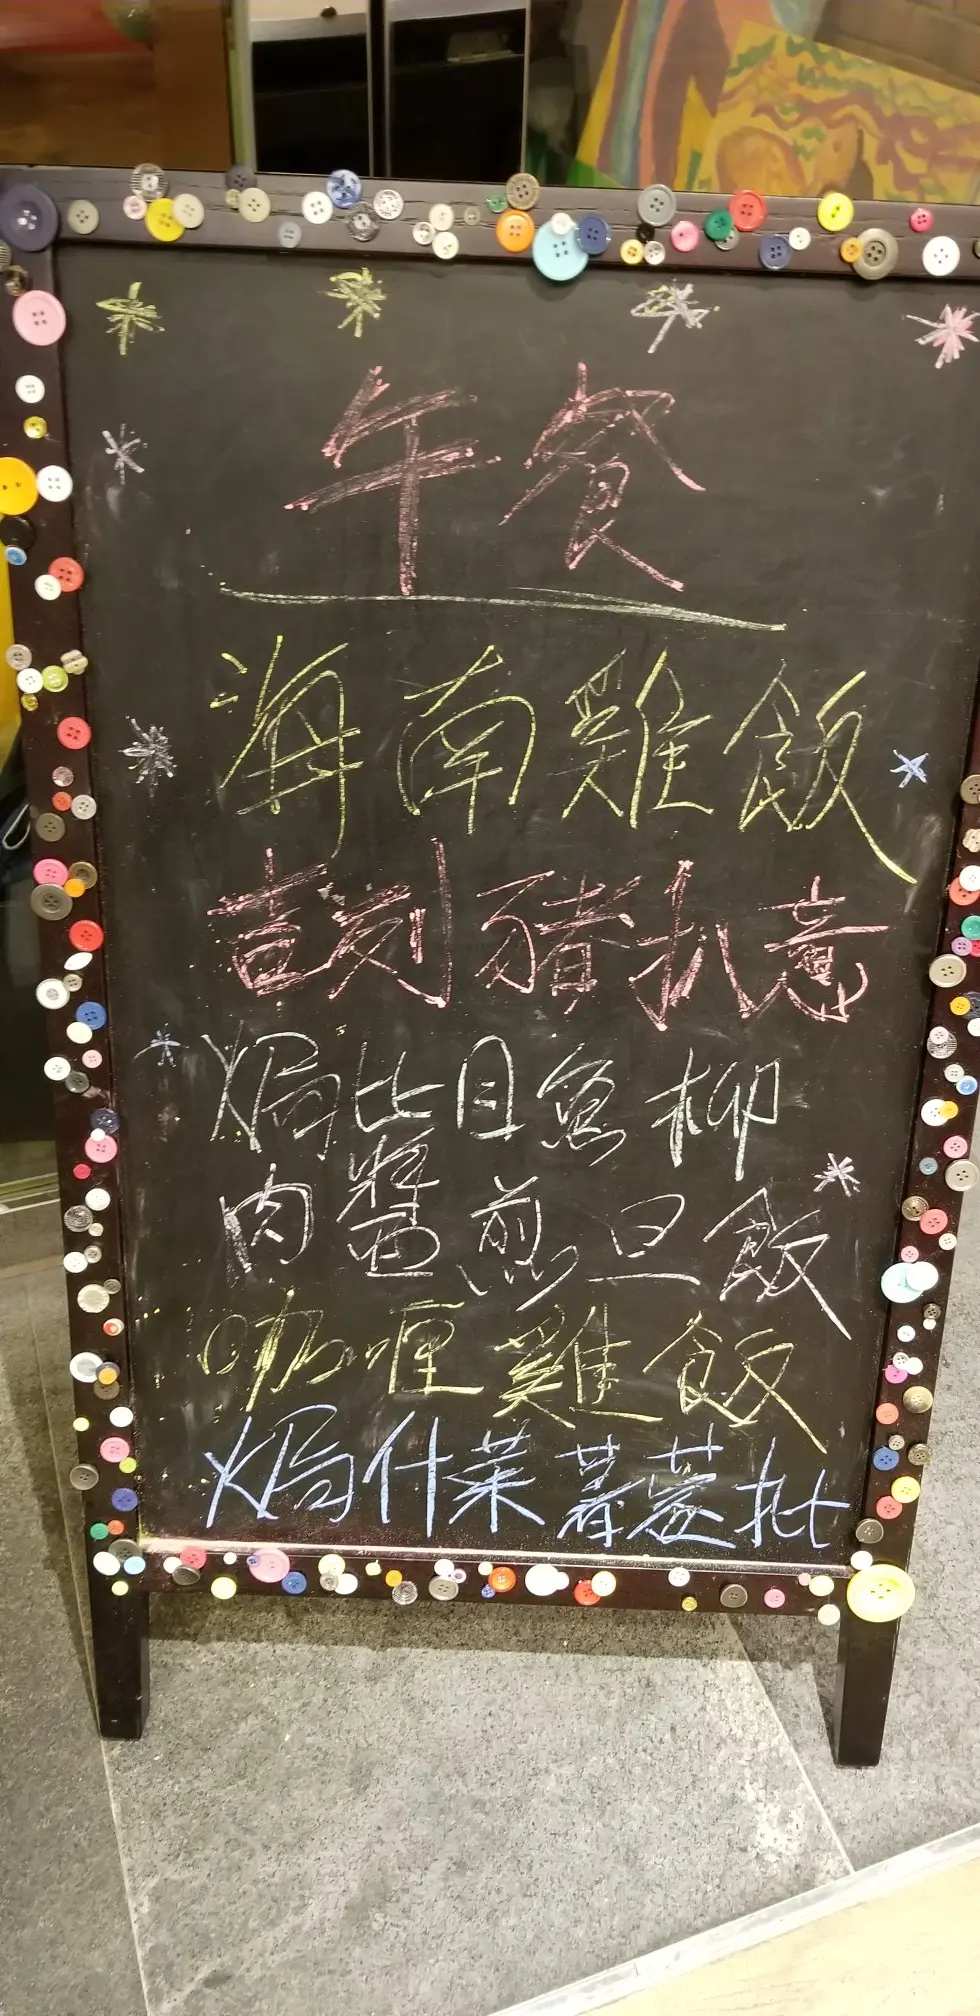 午餐
海南雞飯
吉列豬扒意
焗比目魚柳
肉醬煎旦飯
咖喱雞飯
焗什菜薯蓉批